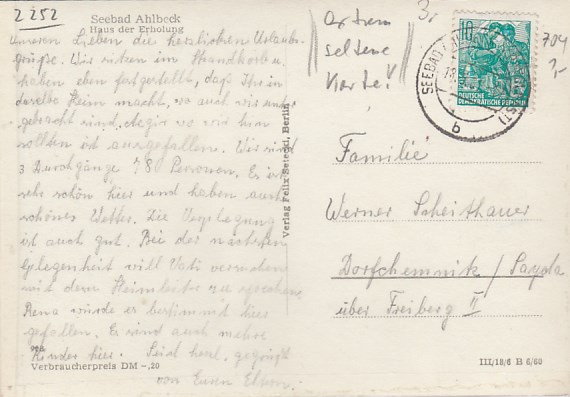 2252
Seebad Ahlbeck
Haus der Erholung
Unseren Lieben die herzlichsten Urlaubs-
grüße. Wir sitzen im Strandkorb u.
haben eben festgestellt, daß Ihr in
derselbe Heim macht, wo auch wir
gebracht sind.
sollten ist ausgefallen. Wir sind
3 Durchgänge 78 Personen. Es ist
sehr schön hier und haben auch
schönes Wetter. Die Verpflegung
ist auch gut. Bei der nächsten
Gelegenheit will Vati
mit dem Heimleiter zu sprechen.
Rena würde es bestimmt hier
gefallen. Es sind auch mehre
Kinder hier. Seid herzl. gegrüßt
von Euren Eltern.
Verbraucherpreis DM -,20
Verlag Felix Setecki, Berlin
extrem
seltene
Karte!
3,-
704
SEEBAD
b
10
DEUTSCHE
DEMOKRATISCHE REPUBLIK
Familie
Werner Scheithauer
Dorfchemnitz / Sayda
über Freiberg II
III/18/6 B 6/60